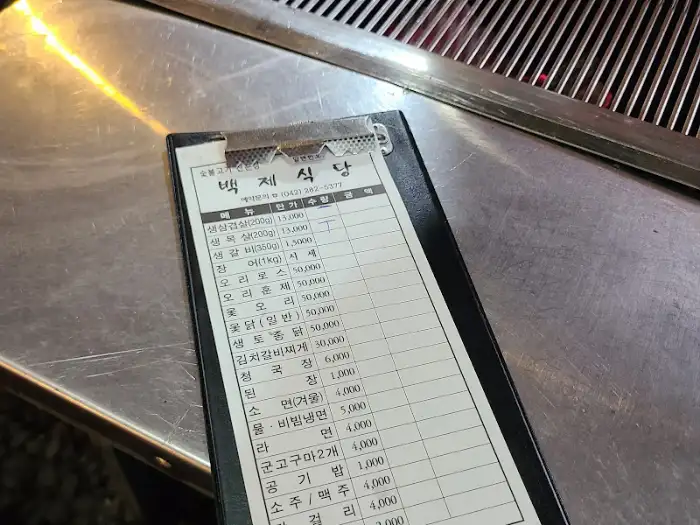 숯불고기 전문점
백제식당
예약문의 ☎ (042) 282-5377
메뉴 단가 수량 금액
생삼겹살(200g) 13,000
생목살(200g) 13,000
생갈비(350g) 1,5000
장어(1kg) 시세
오리로스 50,000
오리훈제 50,000
옻오리 50,000
옻닭(일반) 50,000
생토종닭 50,000
김치갈비찌게 30,000
청국장 6,000
된장 1,000
소면(겨울) 4,000
물·비빔냉면 5,000
라면 4,000
군고구마2개 4,000
공기밥 1,000
소주/맥주 4,000
걸리 4,000